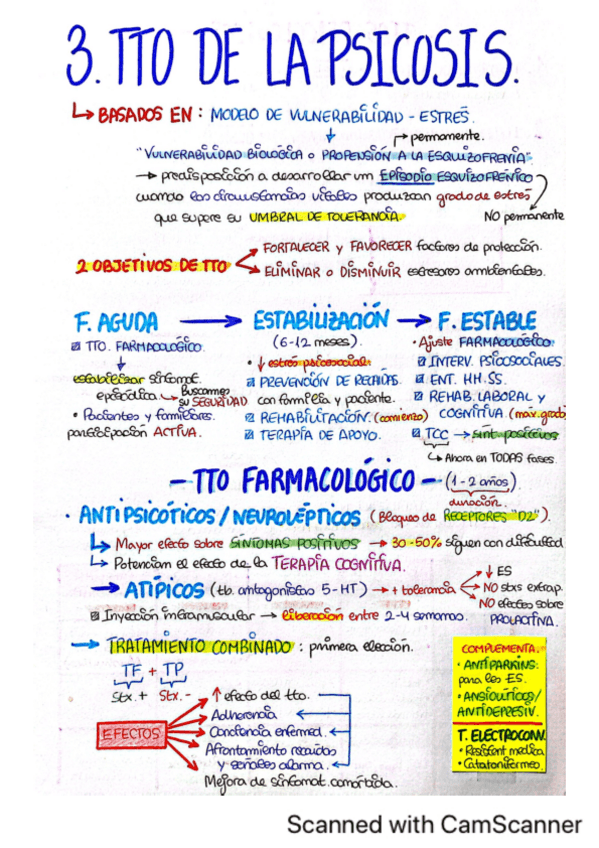 3. TTO DE LA PSICOSIS.
↳ BASADOS EN : MODELO DE VULNERABILIDAD - ESTRÉS.
↓ → permanente.
"VULNERABILIDAD BIOLÓGICA o PROPENSIÓN A LA ESQUIZOFRENIA".
→ predisposición a desarrollar un EPISODIO ESQUIZOFRÉNICO
cuando las circunstancias vitales produzcan grado de estrés
que supere su UMBRAL DE TOLERANCIA. NO permanente
2 OBJETIVOS DE TTO
FORTALECER y FAVORECER factores de protección.
ELIMINAR o DISMINUIR estresores ambientales.
F. AGUDA → ESTABILIZACIÓN → F. ESTABLE
TTO. FARMACOLÓGICO.
↓
estabilizar síntomat.
episódica → Buscamos su SEGURIDAD
• Pacientes y familiares.
participación ACTIVA.
(6-12 meses).
• ↓ estrés psicosocial.
PREVENCIÓN DE RECAÍDAS.
con familia y paciente.
REHABILITACIÓN. (comienzo)
TERAPIA DE APOYO.
• Ajuste FARMACOLÓGICO.
INTERV. PSICOSOCIALES.
ENT. HH.SS.
REHAB. LABORAL y
COGNITIVA (máx. grado)
TCC → sínt. positivos
↳ Ahora en TODAS fases.
- TTO FARMACOLÓGICO - (1-2 años).
duración.
• ANTIPSICÓTICOS / NEUROLÉPTICOS (Bloqueo de RECEPTORES "D2").
↳ Mayor efecto sobre SÍNTOMAS POSITIVOS → 30-50% siguen con dificultad
↳ Potencian el efecto de la TERAPIA COGNITIVA.
→ ATÍPICOS (tb. antagonistas 5-HT) → + tolerancia
↓ ES
NO stxs extrap.
NO efectos sobre
PROLACTINA.
Inyección intramuscular → liberación entre 2-4 semanas.
→ TRATAMIENTO COMBINADO : primera elección.
TF + TP
Stx. + Stx. -
EFECTOS
↑ efecto del tto.
Adherencia
Conciencia enfermed.
Afrontamiento recaídas
y señales alarma.
Mejora de síntomat. comórbida.
COMPLEMENTA.
• ANTIPARKINS.
para los ES.
• ANSIOLÍTICOS/
ANTIDEPRESIV.
T. ELECTROCONV.
• Resistent médica
• Catatoniforme.
Scanned with CamScanner